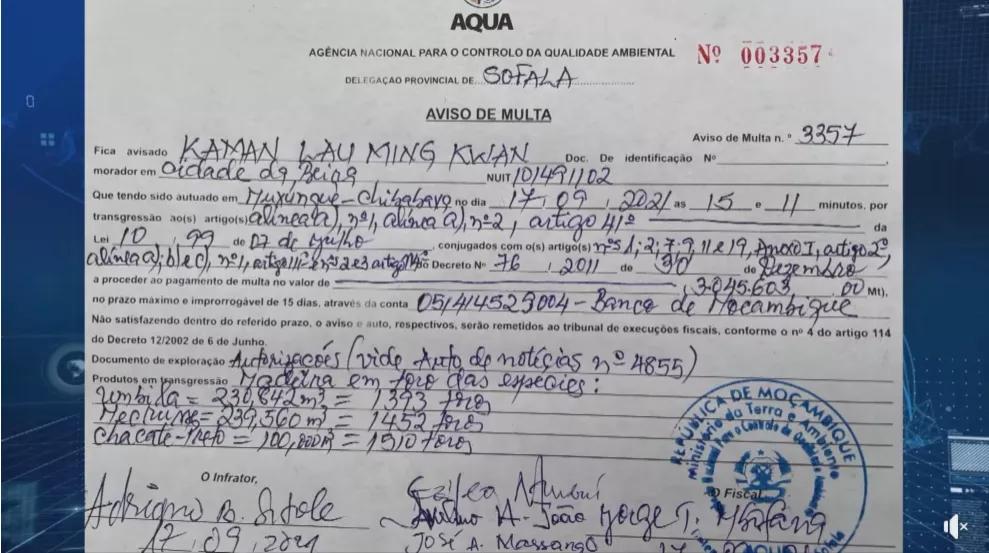 AQUA
AGÊNCIA NACIONAL PARA O CONTROLO DA QUALIDADE AMBIENTAL
Nº 003357
DELEGAÇÃO PROVINCIAL DE SOFALA
AVISO DE MULTA
Aviso de Multa n. º 3357
Fica avisado KAMAN LAU MING KWAN Doc. De identificação Nº
morador em Cidade da Beira NUIT 101491102
Que tendo sido autuado em Muxungue-Chibabava no dia 17, 09, 2021 as 15 e 11 minutos, por
transgressão ao(s) artigo(s) alínea a), nº1, alínea a), nº2, artigo 41º da
Lei 10, 99 de 07 de Julho, conjugados com o(s) artigo(s) nºs 1; 2; 7; 9, 11 e 19, Anexo I, artigo 2º,
alínea a; b e c), nº1, artigo 11º e nºs 2 e 3 artigo do Decreto Nº 76, 2011 de 30 de Dezembro
a proceder ao pagamento de multa no valor de 3.045.603,00 Mt),
no prazo máximo e improrrogável de 15 dias, através da conta 051414529004 - Banco de Moçambique
Não satisfazendo dentro do referido prazo, o aviso e auto, respectivos, serão remetidos ao tribunal de execuções fiscais, conforme o nº 4 do artigo 114
do Decreto 12/2002 de 6 de Junho.
Documento de exploração Autorizações (vide Auto de notícias nº 4855)
Produtos em transgressão Madeira em toro das espécies:
Umbila = 230,842m³ = 1393 toros
Mecrusse = 239,560m³ = 1452 toros
Chacate-Preto = 100,000m³ = 1510 toros
REPÚBLICA DE MOÇAMBIQUE
Ministério da Terra e Ambiente
O Infrator,
O Fiscal
Adriano B. Sitole
A. João Jorge T.
17, 09, 2021
JOSÉ A. Massango
AQUA